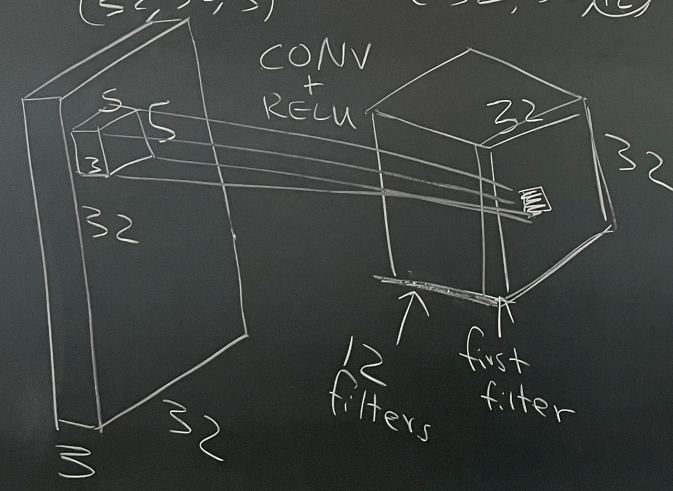 (32, 32, 3)
(32, 32, 12)
CONV
+
RELU
5
5
3
32
3
32
32
32
12
filters
first
filter